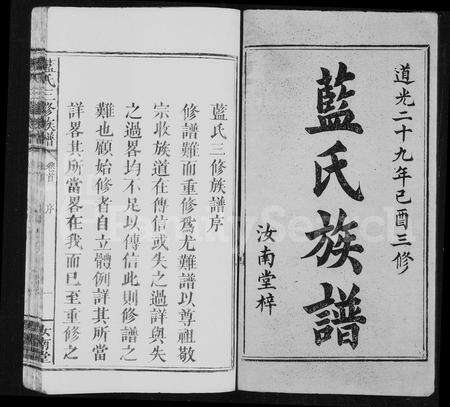 道光二十九年己酉三修
藍氏族譜
汝南堂梓
藍氏三修族譜序
修譜難而重修為尤難譜以尊祖敬
宗收族道在傳信或失之過詳與失
之過畧均不足以傳信此則修譜之
難也顧始修者自立體例詳其所當
詳畧其所當畧在我而已至重修之
藍氏三修族譜
卷首
序
一
汝南堂
FamilySearch